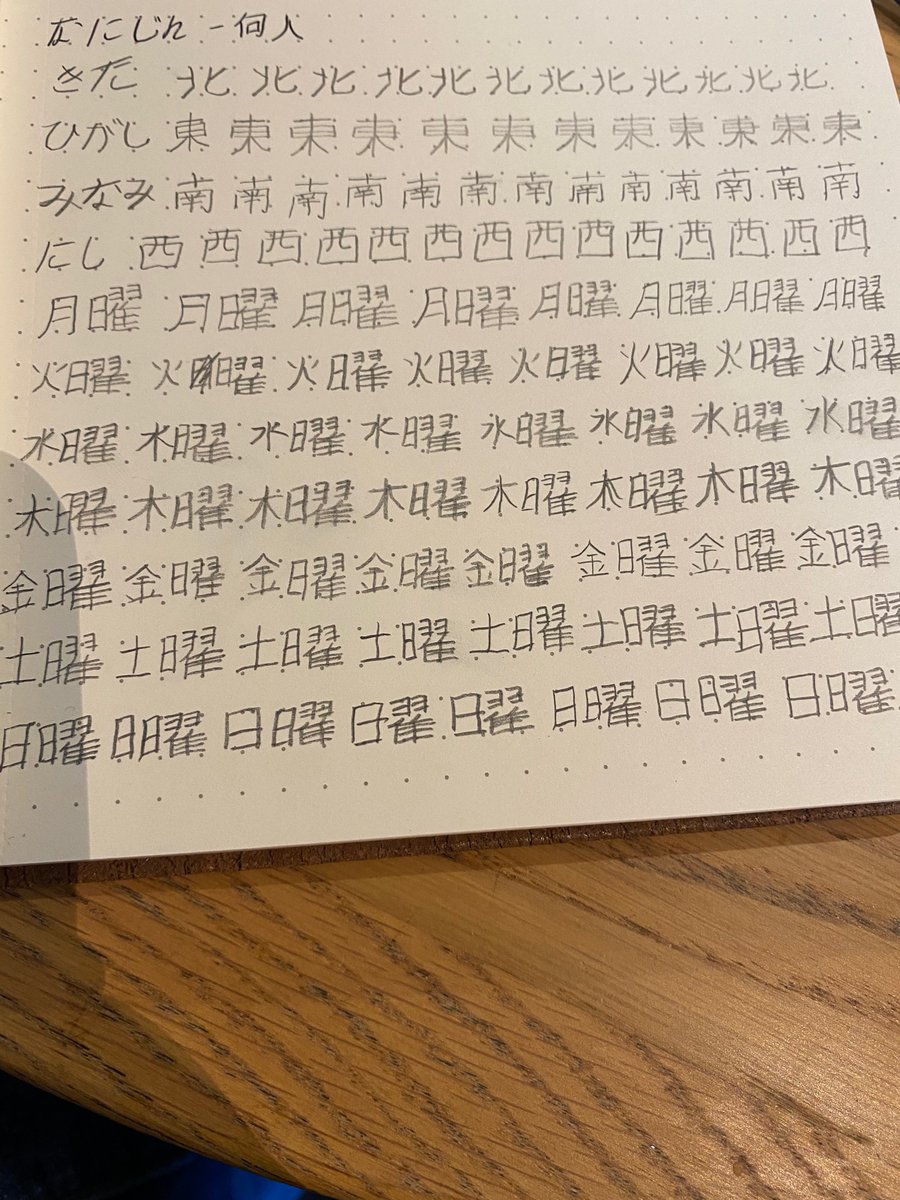 なにじん - 何人
きた 北 北 北 北 北 北 北 北 北 北 北 北
ひがし 東 東 東 東 東 東 東 東 東 東 東 東
みなみ 南 南 南 南 南 南 南 南 南 南 南 南 南
にし 西 西 西 西 西 西 西 西 西 西 西 西 西 西
月曜 月曜 月曜 月曜 月曜 月曜 月曜 月曜
火曜 火曜 火曜 火曜 火曜 火曜 火曜 火曜
水曜 水曜 水曜 水曜 水曜 水曜 水曜 水曜
木曜 木曜 木曜 木曜 木曜 木曜 木曜 木曜
金曜 金曜 金曜 金曜 金曜 金曜 金曜 金曜
土曜 土曜 土曜 土曜 土曜 土曜 土曜 土曜
日曜 日曜 日曜 日曜 日曜 日曜 日曜 日曜